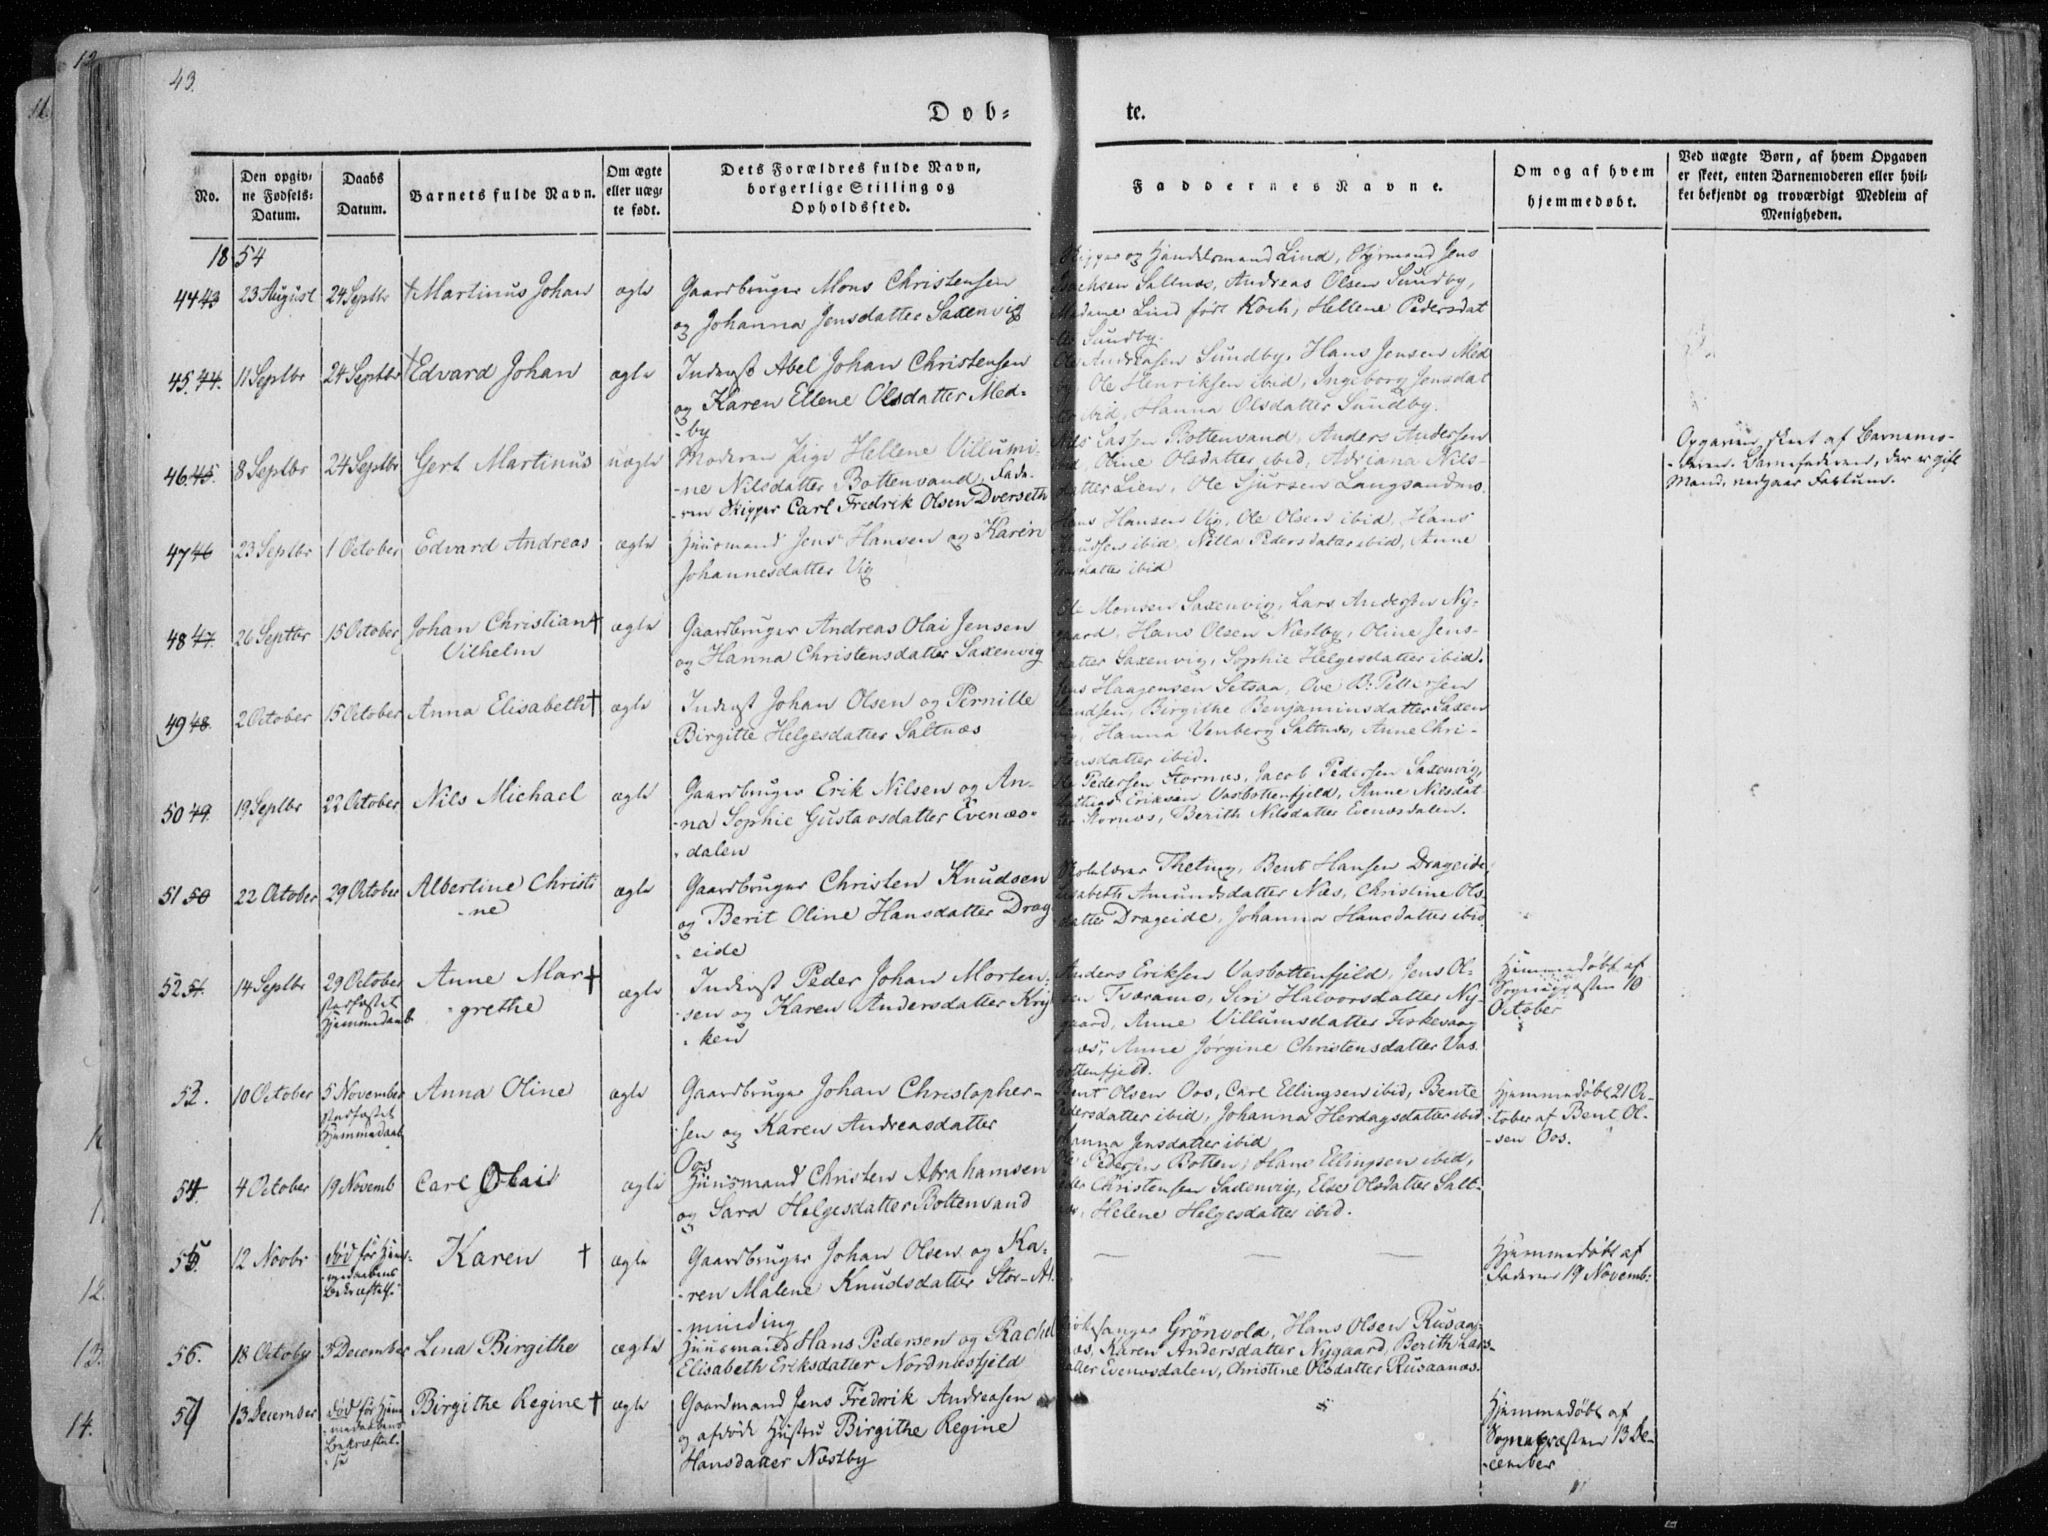 43.
Døb-
te.
No.
Den opgiv-
ne Fødsels-
Datum.
Daabs
Datum.
Barnets fulde Navn.
Om ægte
eller uæg-
te født.
Dets Forældres fulde Navn,
borgerlige Stilling og
Opholdssted.
Faddernes Navne.
Om og af hvem
hjemmedøbt.
Ved uægte Børn, af hvem Opgaven
er skeet, enten Barnemoderen eller hvil-
ket bekjendt og troværdigt Medlem af
Menigheden.
1854
44 43 23 August 24 Septbr † Martinus Johan ægte
Gaardbruger Mons Christensen
og Johanna Jensdatter Saxenvig
og Handelsmand Lind, Styrmand Jens
Saltnæs, Andreas Olsen Sundby,
Madame Lind født Koch, Hellene Pedersdat
Sundby.
45. 44. 11 Septbr 24 Septbr † Edvard Johan ægte
Inderst Abel Johan Christensen
og Karen Ellene Olsdatter Med-
-by
Ole Andreasen Sundby, Hans Jensen Med
Ole Henriksen ibid, Ingeborg Jensdat
ibid, Hanna Olsdatter Sundby.
46. 45. 8 Septbr 24 Septbr Gert Martinus uægte
Moderen Pige Hellene Villumi-
-ne Nilsdatter Bottenvand, Fade-
-ren Skipper Carl Fredrik Olsen Dverseth
Bottenvand, Anders Andersen
Oline Olsdatter ibid, Adriana Nils-
datter Lien, Ole Sjursen Langsandmo.
Opgaven skeet af Barnemo-
-deren. Barnefaderen, der er gift
Mand, vedgaar Factum.
47 46 23 Septbr 1 October Edvard Andreas ægte
Huusmand Jens Hansen og Karen
Johannesdatter Vig
Hans Hansen Vig, Ole Olsen ibid, Hans
Knudsen ibid, Nilla Pedersdatter ibid, Anne
datter ibid
48 47. 26 Septbr 15 October Johan Christian †
Vilhelm
ægte
Gaardbruger Andreas Olai Jensen
og Hanna Christensdatter Saxenvig
Ole Monsen Saxenvig, Lars Andersen Ny-
gaard, Hans Olsen Næstby, Oline Jens-
datter Saxenvig, Sophie Helgesdatter ibid.
49 48. 2 October 15 October Anna Elisabeth † ægte
Inderst Johan Olsen og Pernille
Birgitte Helgesdatter Saltnæs
Jens Haagensen Setsaa, Ove B. Pettersen
Birgithe Benjaminsdatter Saxen
Hanna Venberg Saltnæs, Anne Chri-
stensdatter ibid.
50 49. 19 Septbr 22 October Nils Michael ægte
Gaardbruger Erik Nilsen og An-
-na Sophie Gustavsdatter Evenæs-
-dalen
Ole Pedersen Stornæs, Jacob Pedersen Saxenvig,
Mathias Eriksen Vasbottenfjeld, Anne Nilsdat-
ter Stornæs, Berith Nilsdatter Evenæsdalen.
51 50 22 October 29 October Albertine Christi
-ne
ægte
Gaardbruger Christen Knudsen
og Berit Oline Hansdatter Drag
-eide
Skolelærer Theting, Bent Hansen Drageide,
Elisabeth Amundsdatter Næs, Christine Ols-
datter Drageide, Johanna Hansdatter ibid
52 51. 14 Septbr 29 October
stadfæstet
Hjemmedaab
Anne Mar †
-grethe
ægte
Inderst Peder Johan Morten-
-sen og Karen Andersdatter Kry
-ken
Anders Eriksen Vasbottenfjeld, Jens Ol-
sen Tveramo, Siri Halvorsdatter Ny-
gaard, Anne Villumsdatter Fiskevaag
næs, Anne Jørgine Christensdatter Vas
bottenfjeld.
Hjemmedøbt af
Sognepræsten 10
October
52. 10 October 5 November
stadfæstet
Hjemmedaab
Anna Oline ægte
Gaardbruger Johan Christopher-
-sen og Karen Andreasdatter
Oos
Bent Olsen Oos, Carl Ellingsen ibid, Bente
Pedersdatter ibid, Johanna Herdagsdatter ibid
Hanna Jensdatter ibid
Hjemmedøbt 21 Oc-
-tober af Bent Ol-
-sen Oos.
54. 4 October 19 Novemb Carl Olai ægte
Huusmand Christen Abrahamsen
og Sara Helgesdatter Bottenvand
Pedersen Botten, Hans Ellingsen ibid,
Peder Christensen Saxenvig, Else Olsdatter Salt-
Helene Helgesdatter ibid.
55. 12 Novbr død før Hjem-
-medaabens
Bekræftelse
Karen † ægte
Gaardbruger Johan Olsen og Ka-
-ren Malene Knudsdatter Stor-Al
-minding
Hjemmedøbt af
Faderen 19 Novemb:
56. 18 Octobr 3 December Lina Birgithe ægte
Huusmand Hans Pedersen og Rachel
Elisabeth Eriksdatter Nordnæsfjeld
Kirkesanger Grønvold, Hans Olsen Rusaa-
næs, Karen Andersdatter Nygaard, Berith Lars-
datter Evenesdalen, Christine Olsdatter Rusaanæs.
57 13 December død før Hjem
-medaabens
Bekræftel-
-se
Birgithe Regine † ægte
Gaardmand Jens Fredrik Andreasen
og afdøde Hustru Birgithe Regine
Hansdatter Næstby
Hjemmedøbt af
Sognepræsten 13 De-
-cember
12.
13.
14.